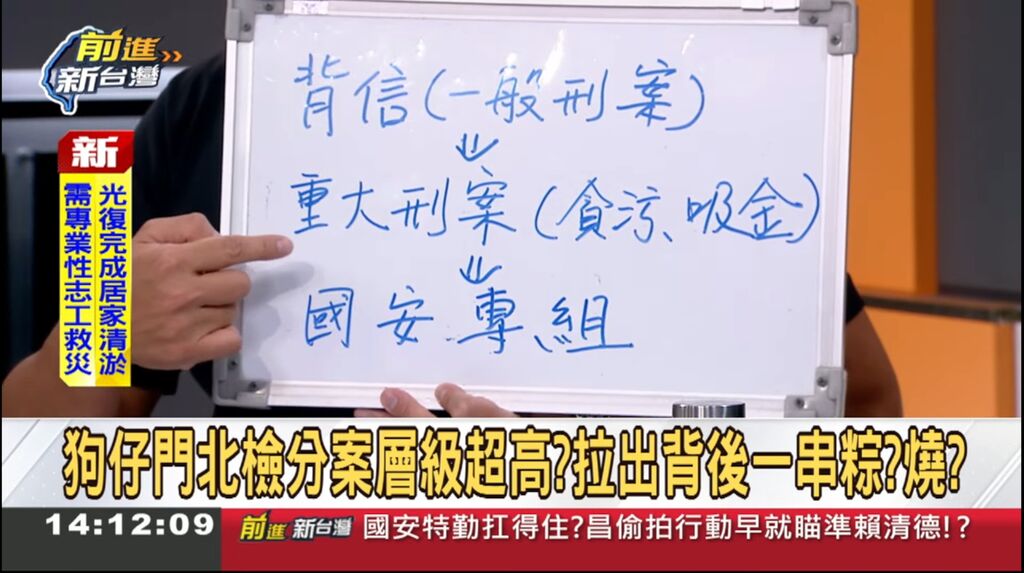 前進
新台灣
新
光復完成居家清淤
需專業性志工救災
背信(一般刑案)
重大刑案(貪污、吸金)
國安專組
狗仔門北檢分案層級超高?拉出背後一串粽?燒?
14:12:09
前進新台灣 國安特勤扛得住?昌偷拍行動早就瞄準賴清德!?